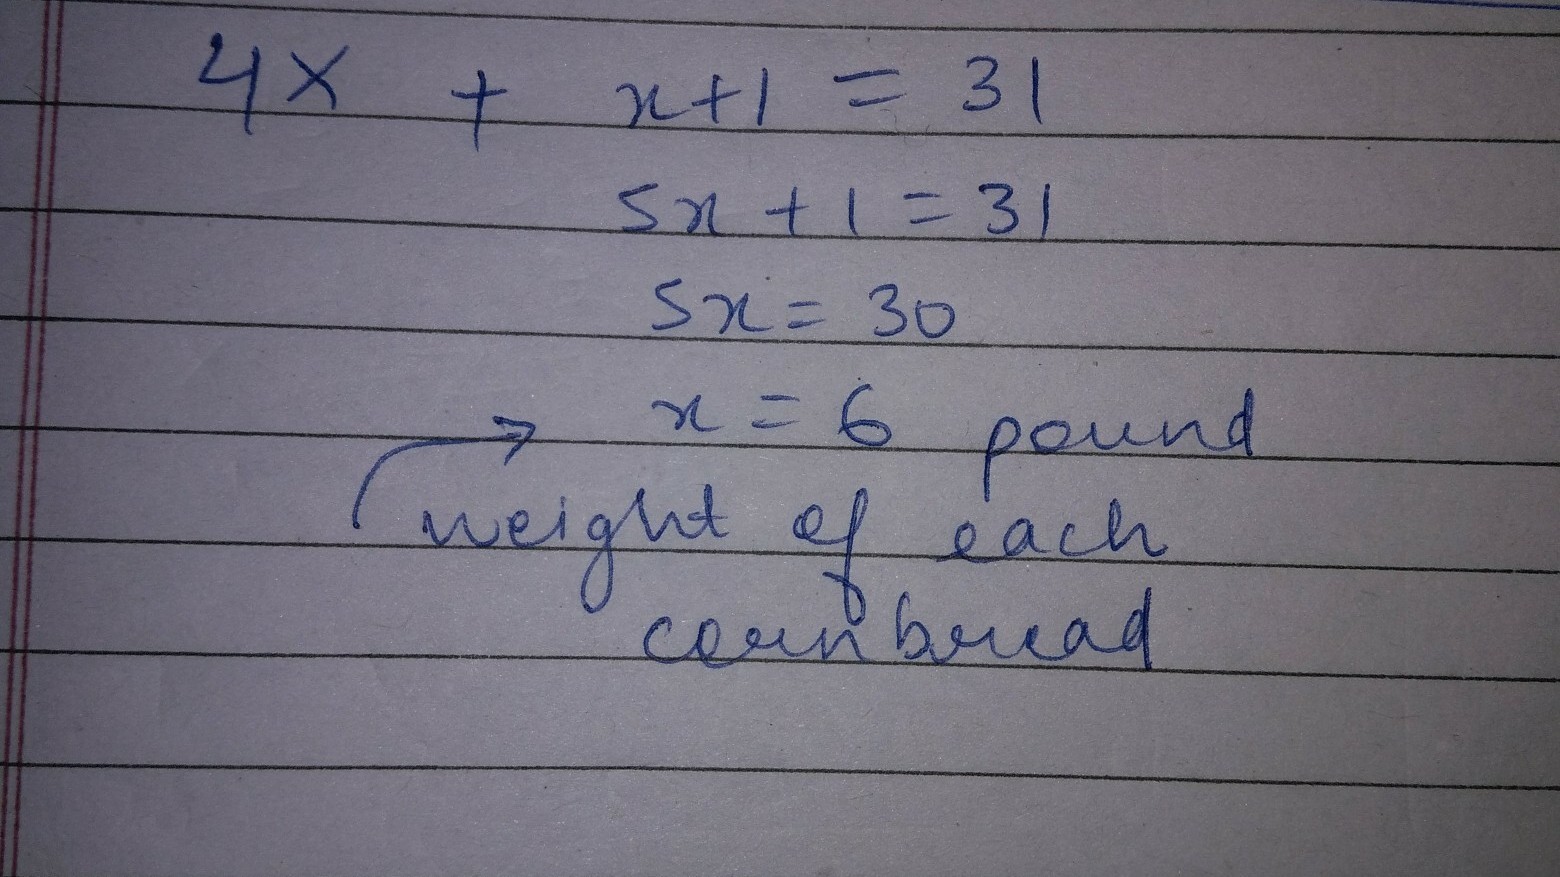 4x + x+1 = 31
5x + 1 = 31
5x = 30
x = 6 pound
weight of each
cornbread